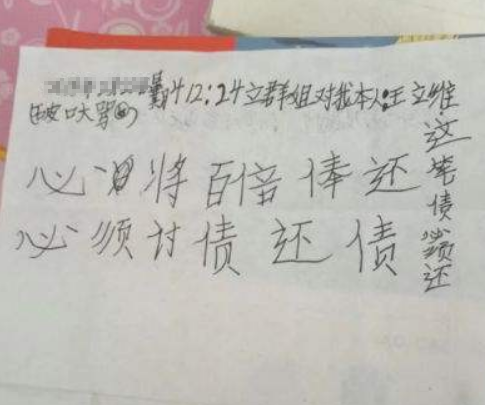 412:24立群姐对我本人王立维
破口大骂的
必须将百倍俸还
必须讨债还债
这笔债必须还